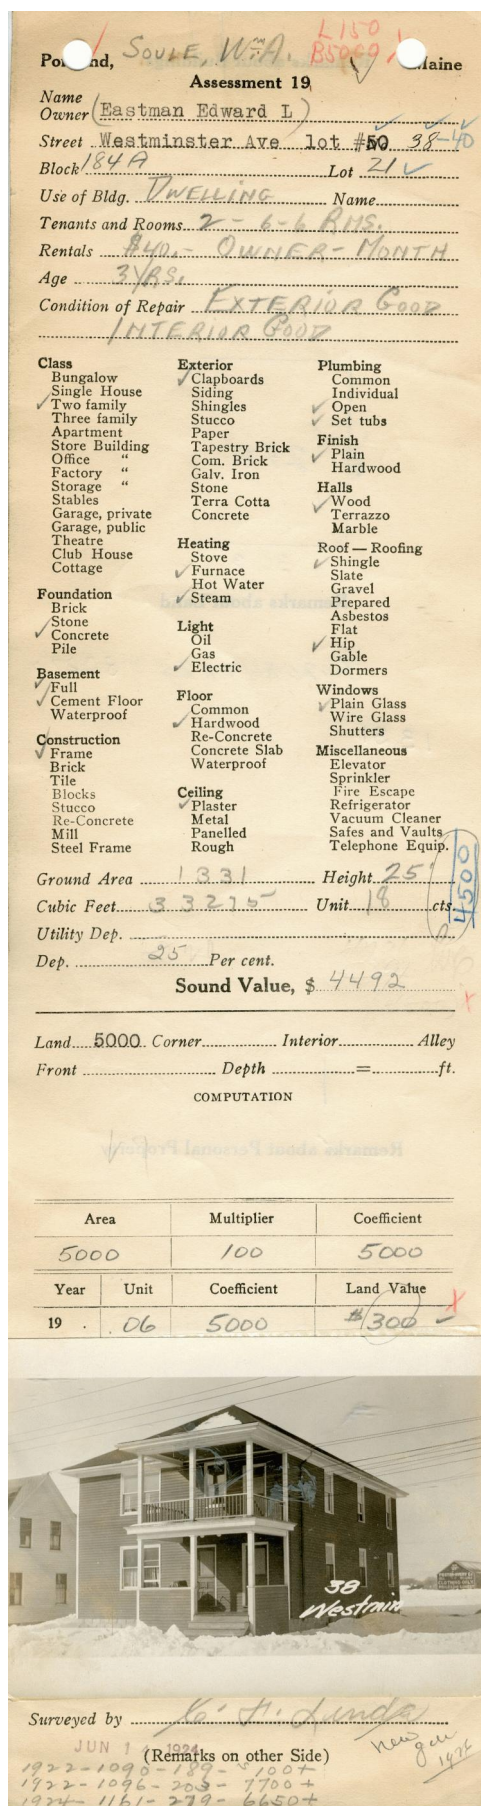 L150
Soule, Wm A. B5000
Portland, Maine
Assessment 19
Name
Owner (Eastman Edward L)
Street Westminster Ave lot #50 38-40
Block 184A Lot 21
Use of Bldg. Dwelling Name
Tenants and Rooms 2 - 6-6 Rms.
Rentals $40.- Owner - Month
Age 3 yrs.
Condition of Repair Exterior Good
Interior Good
Class
Bungalow
Single House
✓ Two family
Three family
Apartment
Store Building
Office "
Factory "
Storage "
Stables
Garage, private
Garage, public
Theatre
Club House
Cottage
Foundation
Brick
Stone
✓ Concrete
Pile
Basement
✓ Full
✓ Cement Floor
Waterproof
Construction
✓ Frame
Brick
Tile
Blocks
Stucco
Re-Concrete
Mill
Steel Frame
Exterior
✓ Clapboards
Siding
Shingles
Stucco
Paper
Tapestry Brick
Com. Brick
Galv. Iron
Stone
Terra Cotta
Concrete
Heating
Stove
✓ Furnace
Hot Water
✓ Steam
Light
Oil
Gas
✓ Electric
Floor
Common
✓ Hardwood
Re-Concrete
Concrete Slab
Waterproof
Ceiling
✓ Plaster
Metal
Panelled
Rough
Plumbing
Common
Individual
✓ Open
✓ Set tubs
Finish
✓ Plain
Hardwood
Halls
✓ Wood
Terrazzo
Marble
Roof — Roofing
✓ Shingle
Slate
Gravel
Prepared
Asbestos
Flat
✓ Hip
Gable
Dormers
Windows
✓ Plain Glass
Wire Glass
Shutters
Miscellaneous
Elevator
Sprinkler
Fire Escape
Refrigerator
Vacuum Cleaner
Safes and Vaults
Telephone Equip.
4500
Ground Area 1331 Height 25'
Cubic Feet 33275 Unit 18 cts.
Utility Dep.
Dep. 25 Per cent.
Sound Value, $ 4492
Land 5000 Corner Interior Alley
Front Depth = ft.
COMPUTATION
Area Multiplier Coefficient
5000 100 5000
Year Unit Coefficient Land Value
19 . .06 5000 $300
38
Westmin
Surveyed by
JUN 1 1924
(Remarks on other Side)
new gar 1928
1922-1090-189- 100+
1922-1096-203-7700+
1924-1161-279-6650+